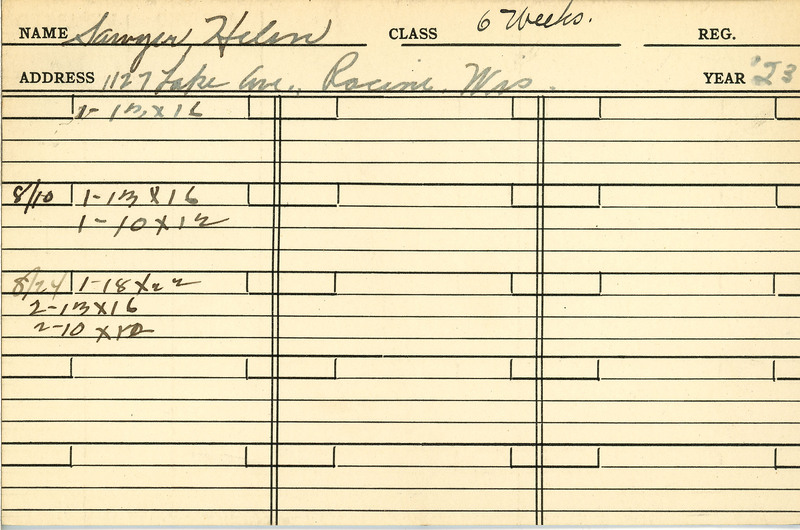 NAME Sawyer, Helen CLASS 6 Weeks. REG.
ADDRESS 1127 Lake Ave., Racine, Wis. YEAR '23
1-13x16
8/10 1-13x16
1-10x12
8/24 1-18x22
2-13x16
2-10x12